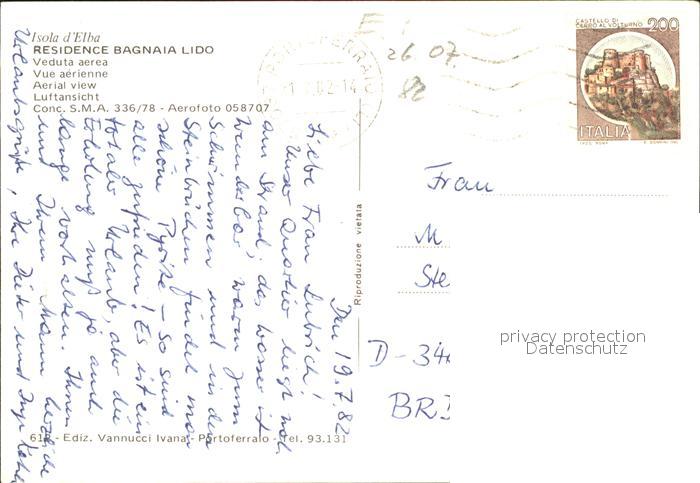 Isola d'Elba
RESIDENCE BAGNAIA LIDO
Veduta aerea
Vue aérienne
Aerial view
Luftansicht
Conc. S.M.A. 336/78 - Aerofoto 058707
Den 19.7.82
Liebe Frau
Unser Quartier liegt nah
am Strand, das Wasser ist
wunderbar warm zum
Schwimmen und in den
Steinbrüchen findet man
schöne Pyrite - so sind
alle zufrieden! Es ist ein
totaler Urlaub, aber die
Erholung muß ja auch
lange vorhalten. Ihnen
und Ihrem Mann herzliche
Urlaubsgrüße, Ihre Dieter und Inge
61 - Ediz. Vannucci Ivana - Portoferraio - Tel. 93.131
Riproduzione vietata
26 07
82
CASTELLO DI
CERRO AL VOLTURNO
200
ITALIA
Frau
M
Ste
D-34
BR
privacy protection
Datenschutz